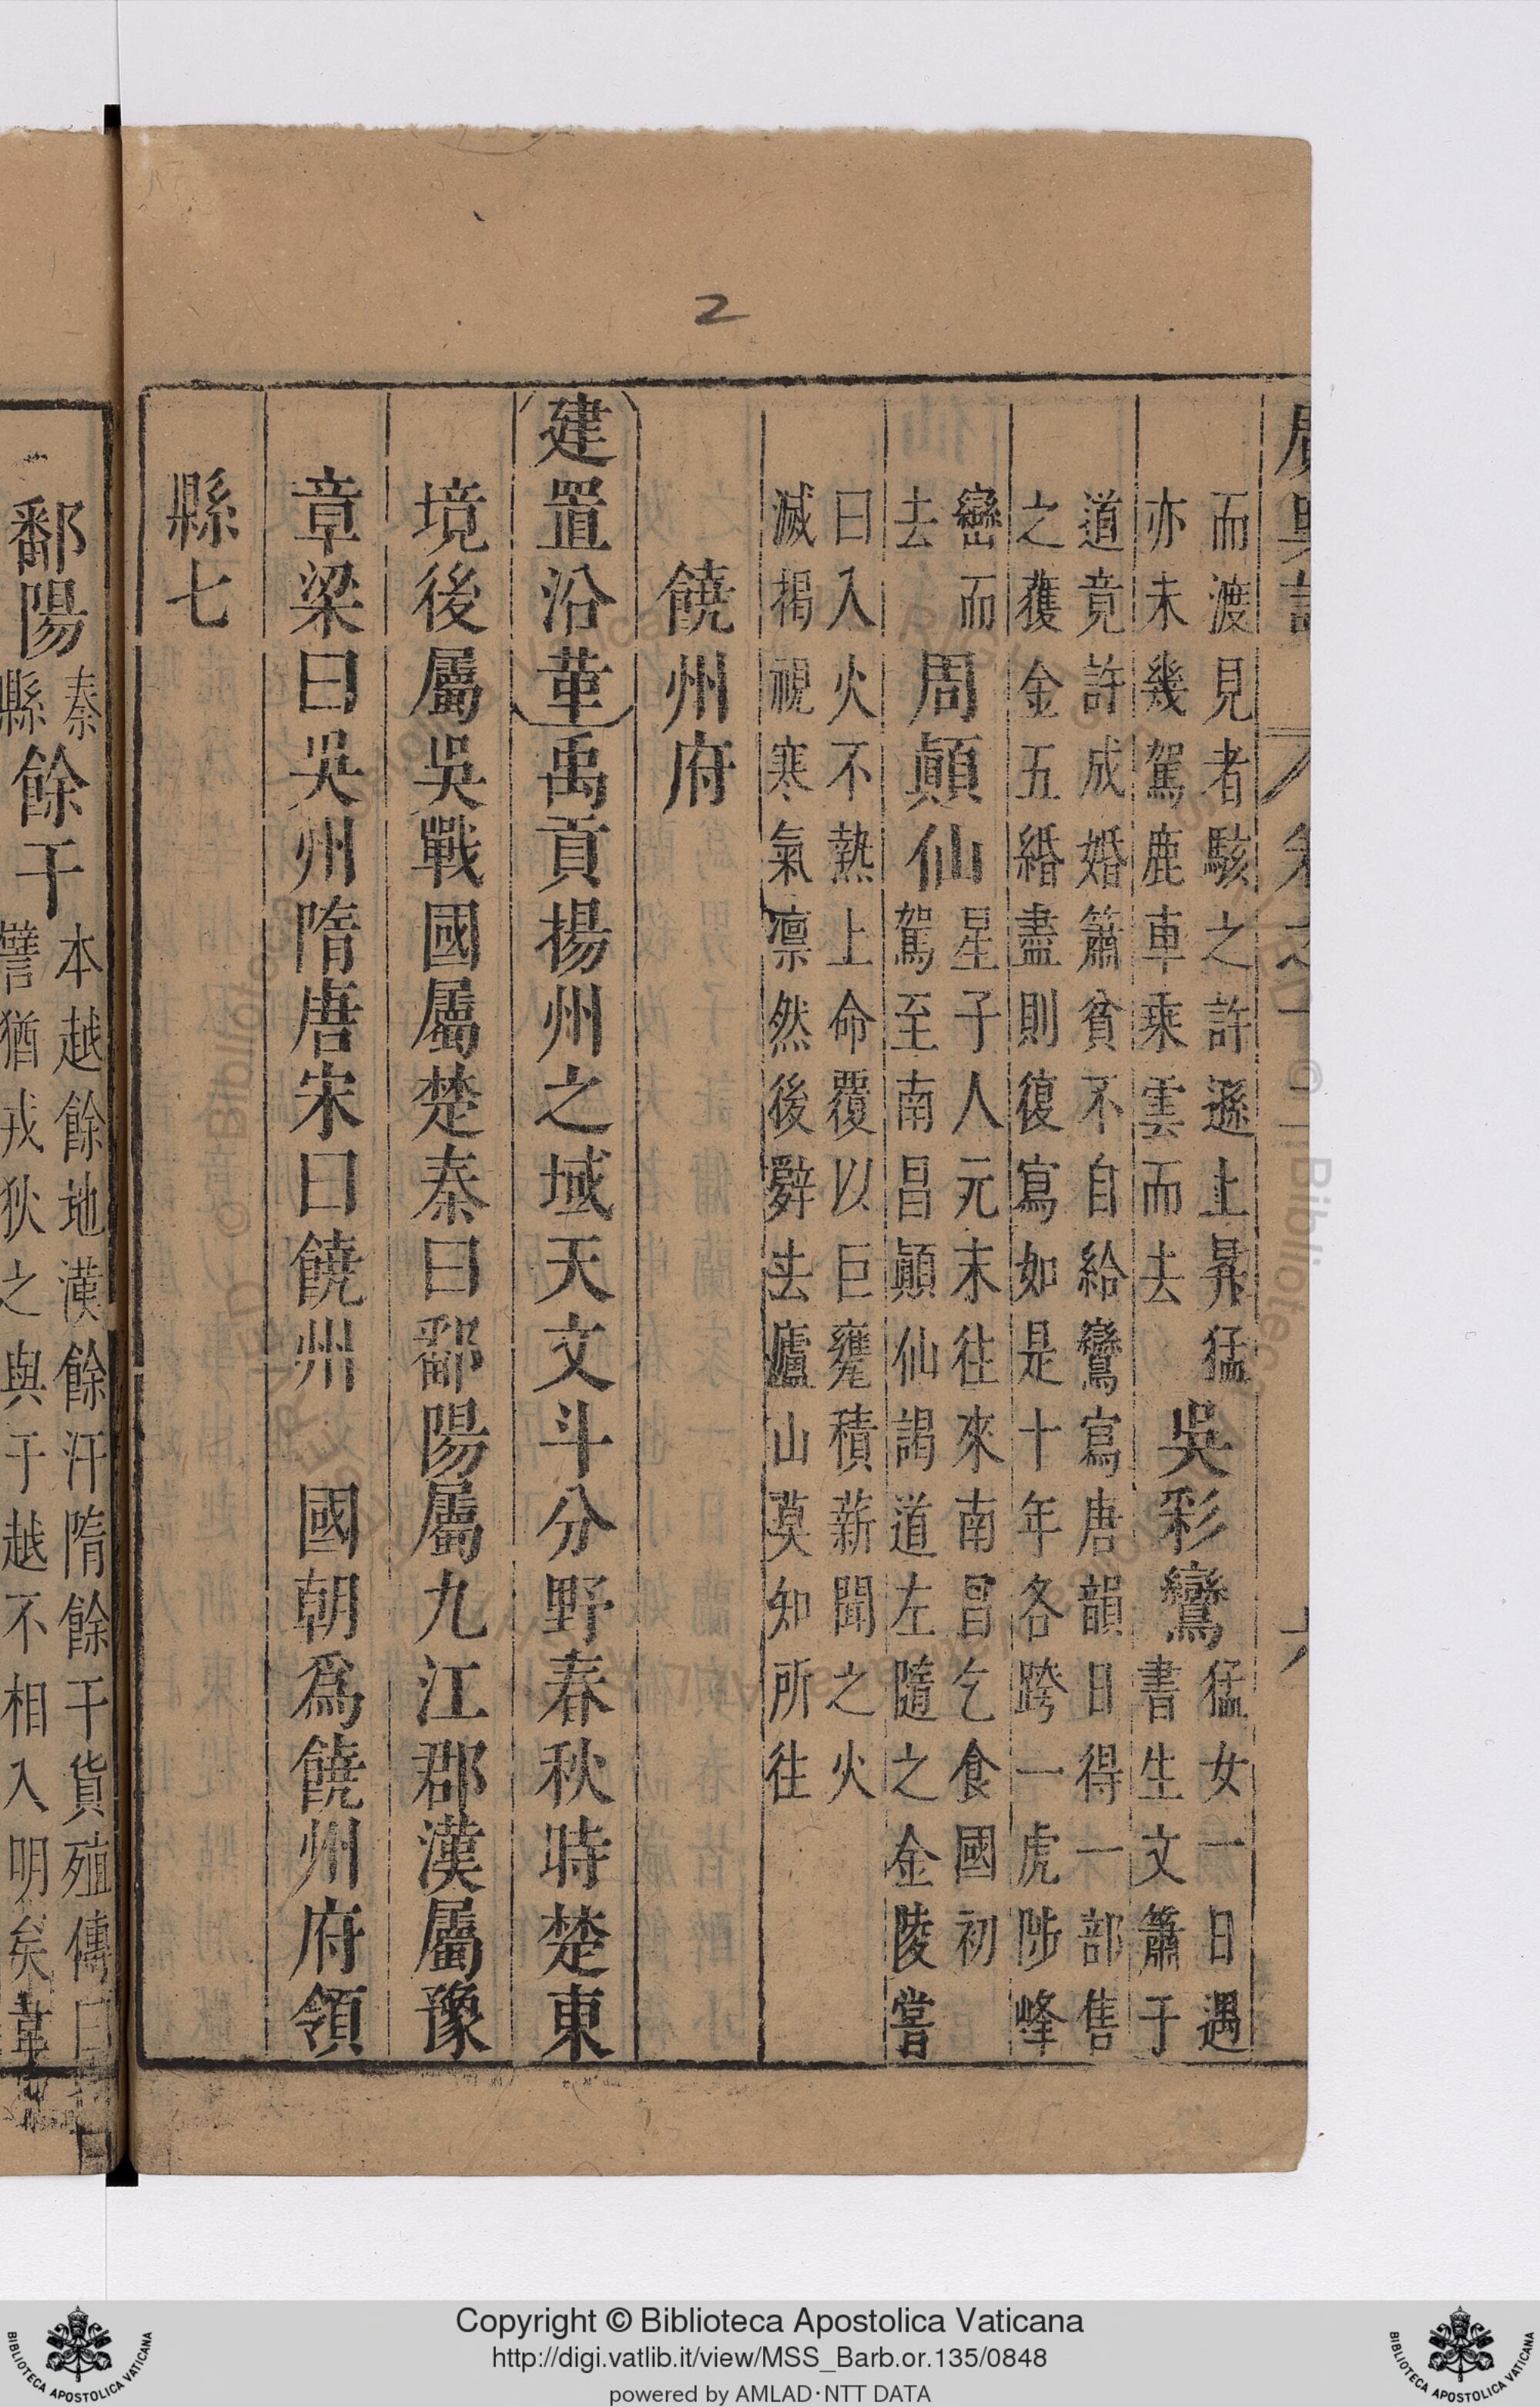 2
而渡見者駭之許遜上昇猛
亦未幾駕鹿車乘雲而去
吳彩鸞
猛女一日遇
書生文簫于
道竟許成婚簫貧不自給鸞寫唐韻日得一部售
之獲金五緡盡則復寫如是十年各跨一虎陟峰
巒而
去
周顛仙
星子人元末往來南昌乞食國初
駕至南昌顛仙謁道左隨之金陵嘗
曰入火不熱上命覆以巨甕積薪聞之火
滅揭視寒氣凛然後辤去廬山莫知所往
饒州府
建置沿革禹貢揚州之域天文斗分野春秋時楚東
境後屬吳戰國屬楚秦曰鄱陽屬九江郡漢屬豫
章梁曰吳州隋唐宋曰饒州 國朝爲饒州府領
縣七
鄱陽
秦
縣
餘干
本越餘地漢餘汗隋餘干貨殖傳曰
譬猶戎狄之與于越不相入明矣
Copyright © Biblioteca Apostolica Vaticana
http://digi.vatlib.it/view/MSS_Barb.or.135/0848
powered by AMLAD·NTT DATA
BIBLIOTECA APOSTOLICA VATICANA
BIBLIOTECA APOSTOLICA VATICANA